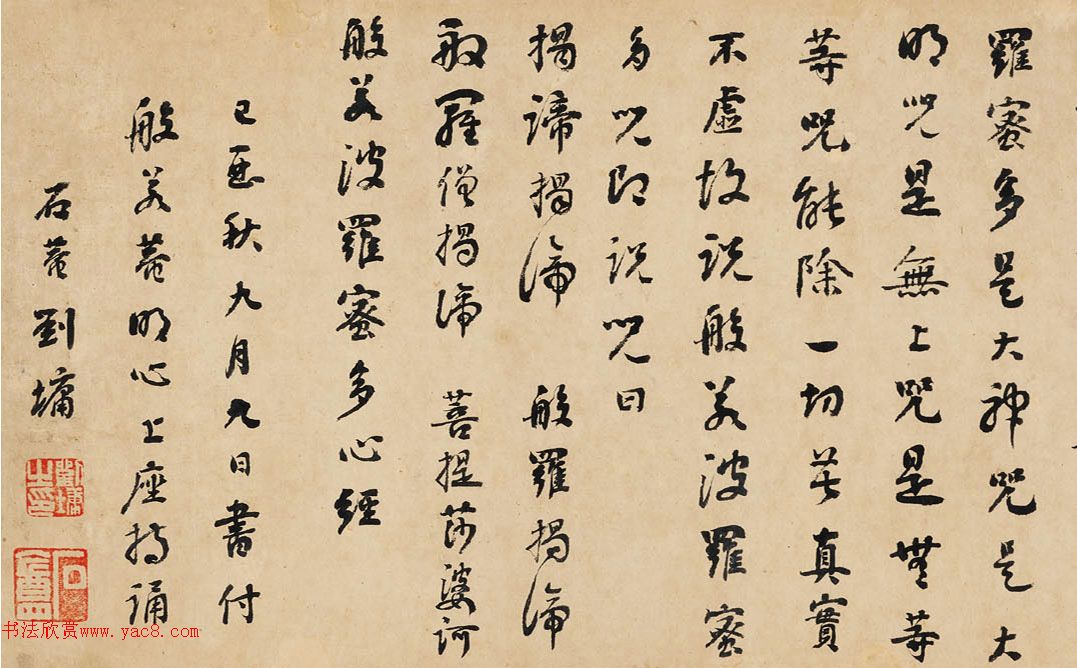 羅蜜多是大神咒是大
明咒是無上咒是無等
等咒能除一切苦真實
不虛故說般若波羅蜜
多咒即說咒曰
揭諦揭諦　般羅揭諦
般羅僧揭諦　菩提莎婆訶
般若波羅蜜多心經
己酉秋九月九日書付
般若菴明心上座持誦
石菴劉墉
劉墉之印
石菴
书法欣赏www.yac8.com